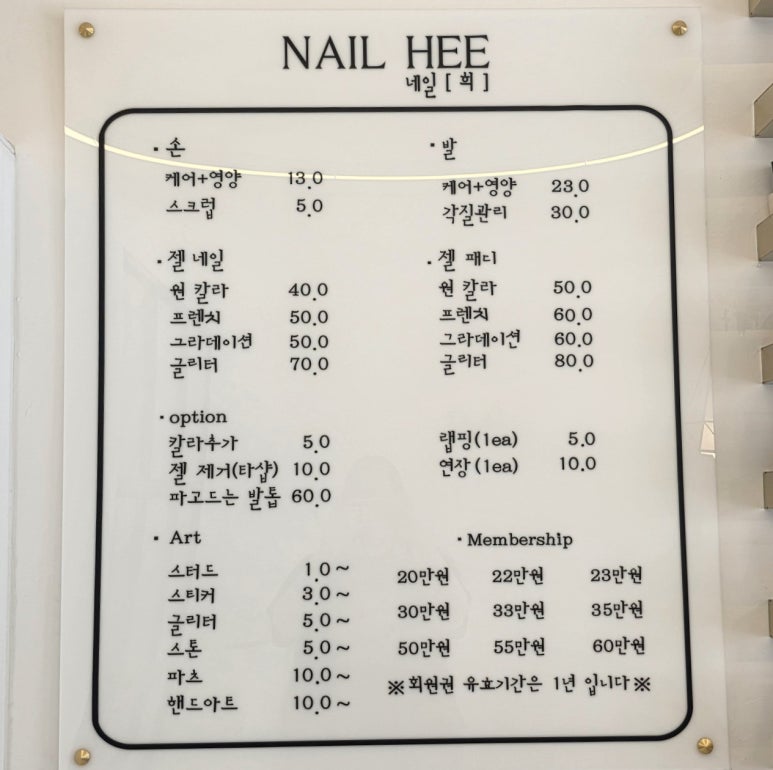 NAIL HEE
네일 [ 희 ]
· 손
케어+영양 13.0
스크럽 5.0
· 발
케어+영양 23.0
각질관리 30.0
· 젤 네일
원 칼라 40.0
프렌치 50.0
그라데이션 50.0
글리터 70.0
· 젤 패디
원 칼라 50.0
프렌치 60.0
그라데이션 60.0
글리터 80.0
· option
칼라추가 5.0
젤 제거(타샵) 10.0
파고드는 발톱 60.0
랩핑(1ea) 5.0
연장(1ea) 10.0
· Art
스터드 1.0~
스티커 3.0~
글리터 5.0~
스톤 5.0~
파츠 10.0~
핸드아트 10.0~
· Membership
20만원 22만원 23만원
30만원 33만원 35만원
50만원 55만원 60만원
※회원권 유효기간은 1년 입니다※